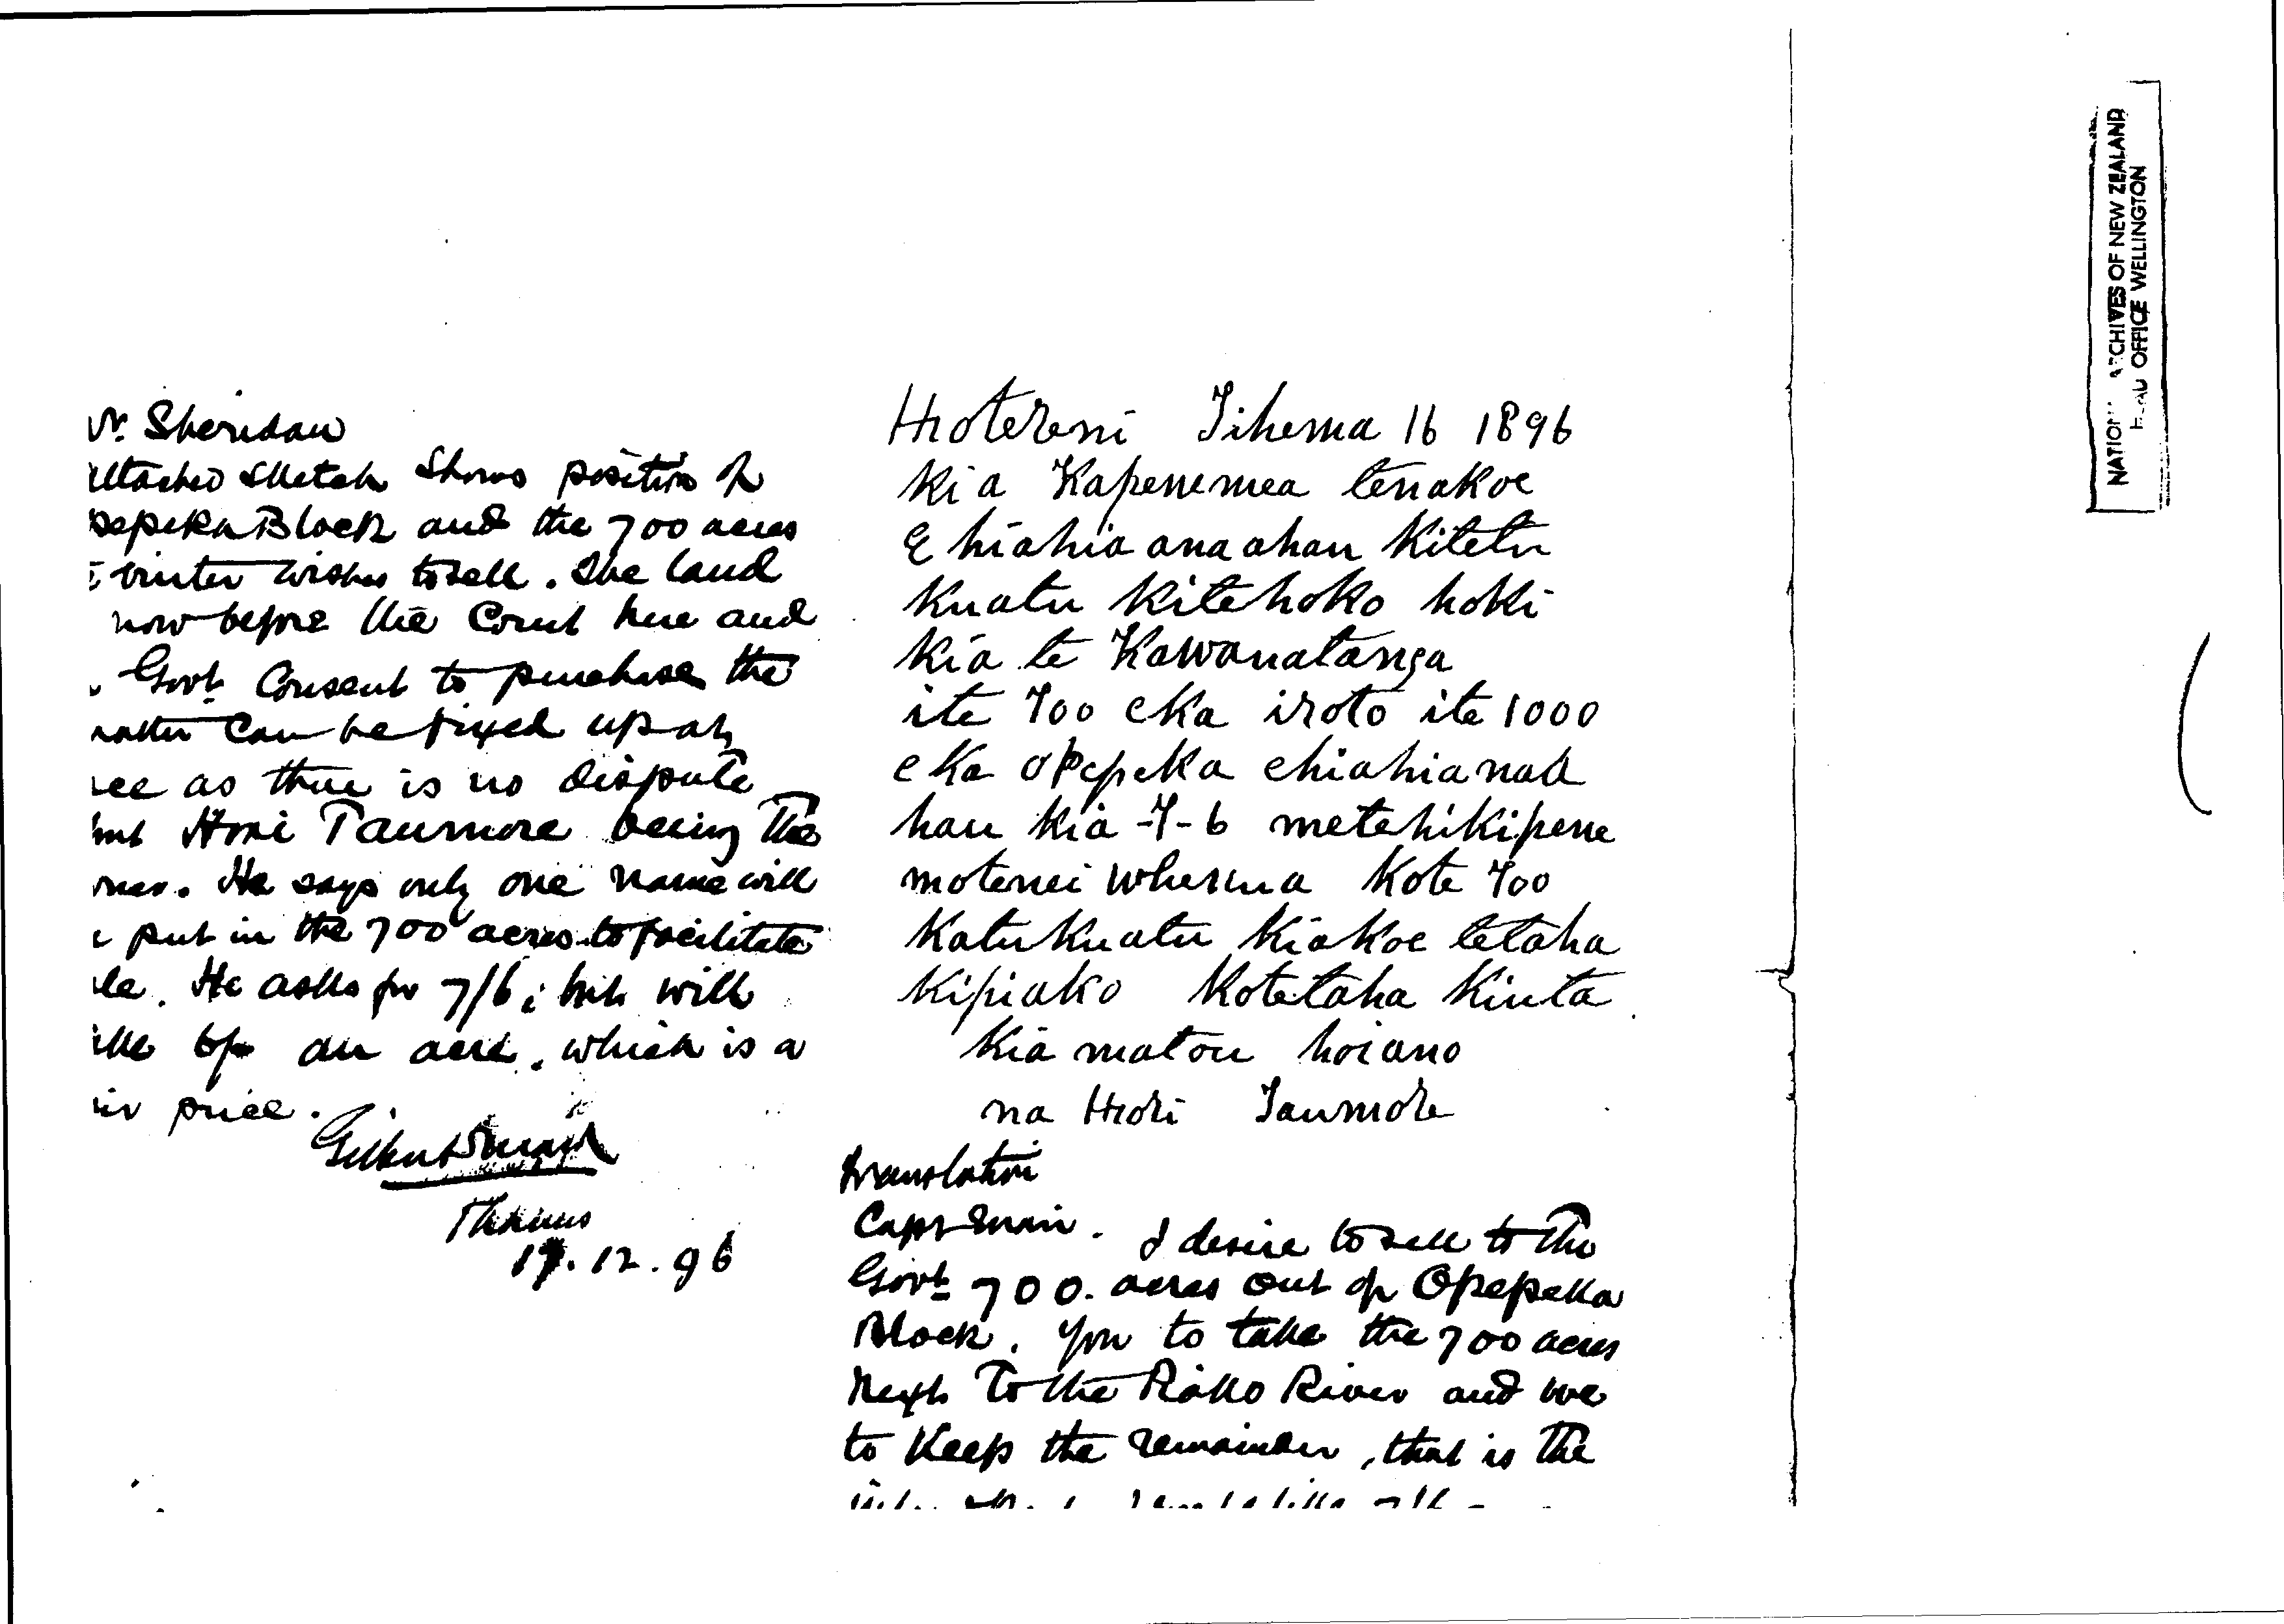 Mr. Sheridan
attached sketch shows position of
Opepeka Block and the 700 acres
writer wishes to sell. The land
now before the Court here and
Govt. Consent to purchase the
matter can be fixed up at
as there is no dispute
but Hori Taumore being the
owner. He says only one name will
put in the 700 acres to facilitate
sale. He asks for 7/6; but will
take 6/- an acre, which is a
fair price.
Gilbert Mair
Thames
17.12.96
Hotereni Tihema 16 1896
Kia Kapenemea tenakoe
E hiahia ana ahau Kitetu
Kuatu Kitehoko hoki
Kia te Kawanatanga
ite 700 eka iroto ite 1000
eka Opepeka ehiahia naa
hau kia -7-6 metehikipene
motenei whenua Kote 700
Katukuatu Kiakoe tetaha
Kipiako Kotetaha Kiuta
Kia matou hoiano
na Hori Taumore
Translation
Capt Mair. I desire to sell to the
Govt 700. acres out of Opepeka
Block. You to take the 700 acres
next to the Piako River and we
to keep the remainder, that is the
NATIONAL ARCHIVES OF NEW ZEALAND
HEAD OFFICE WELLINGTON